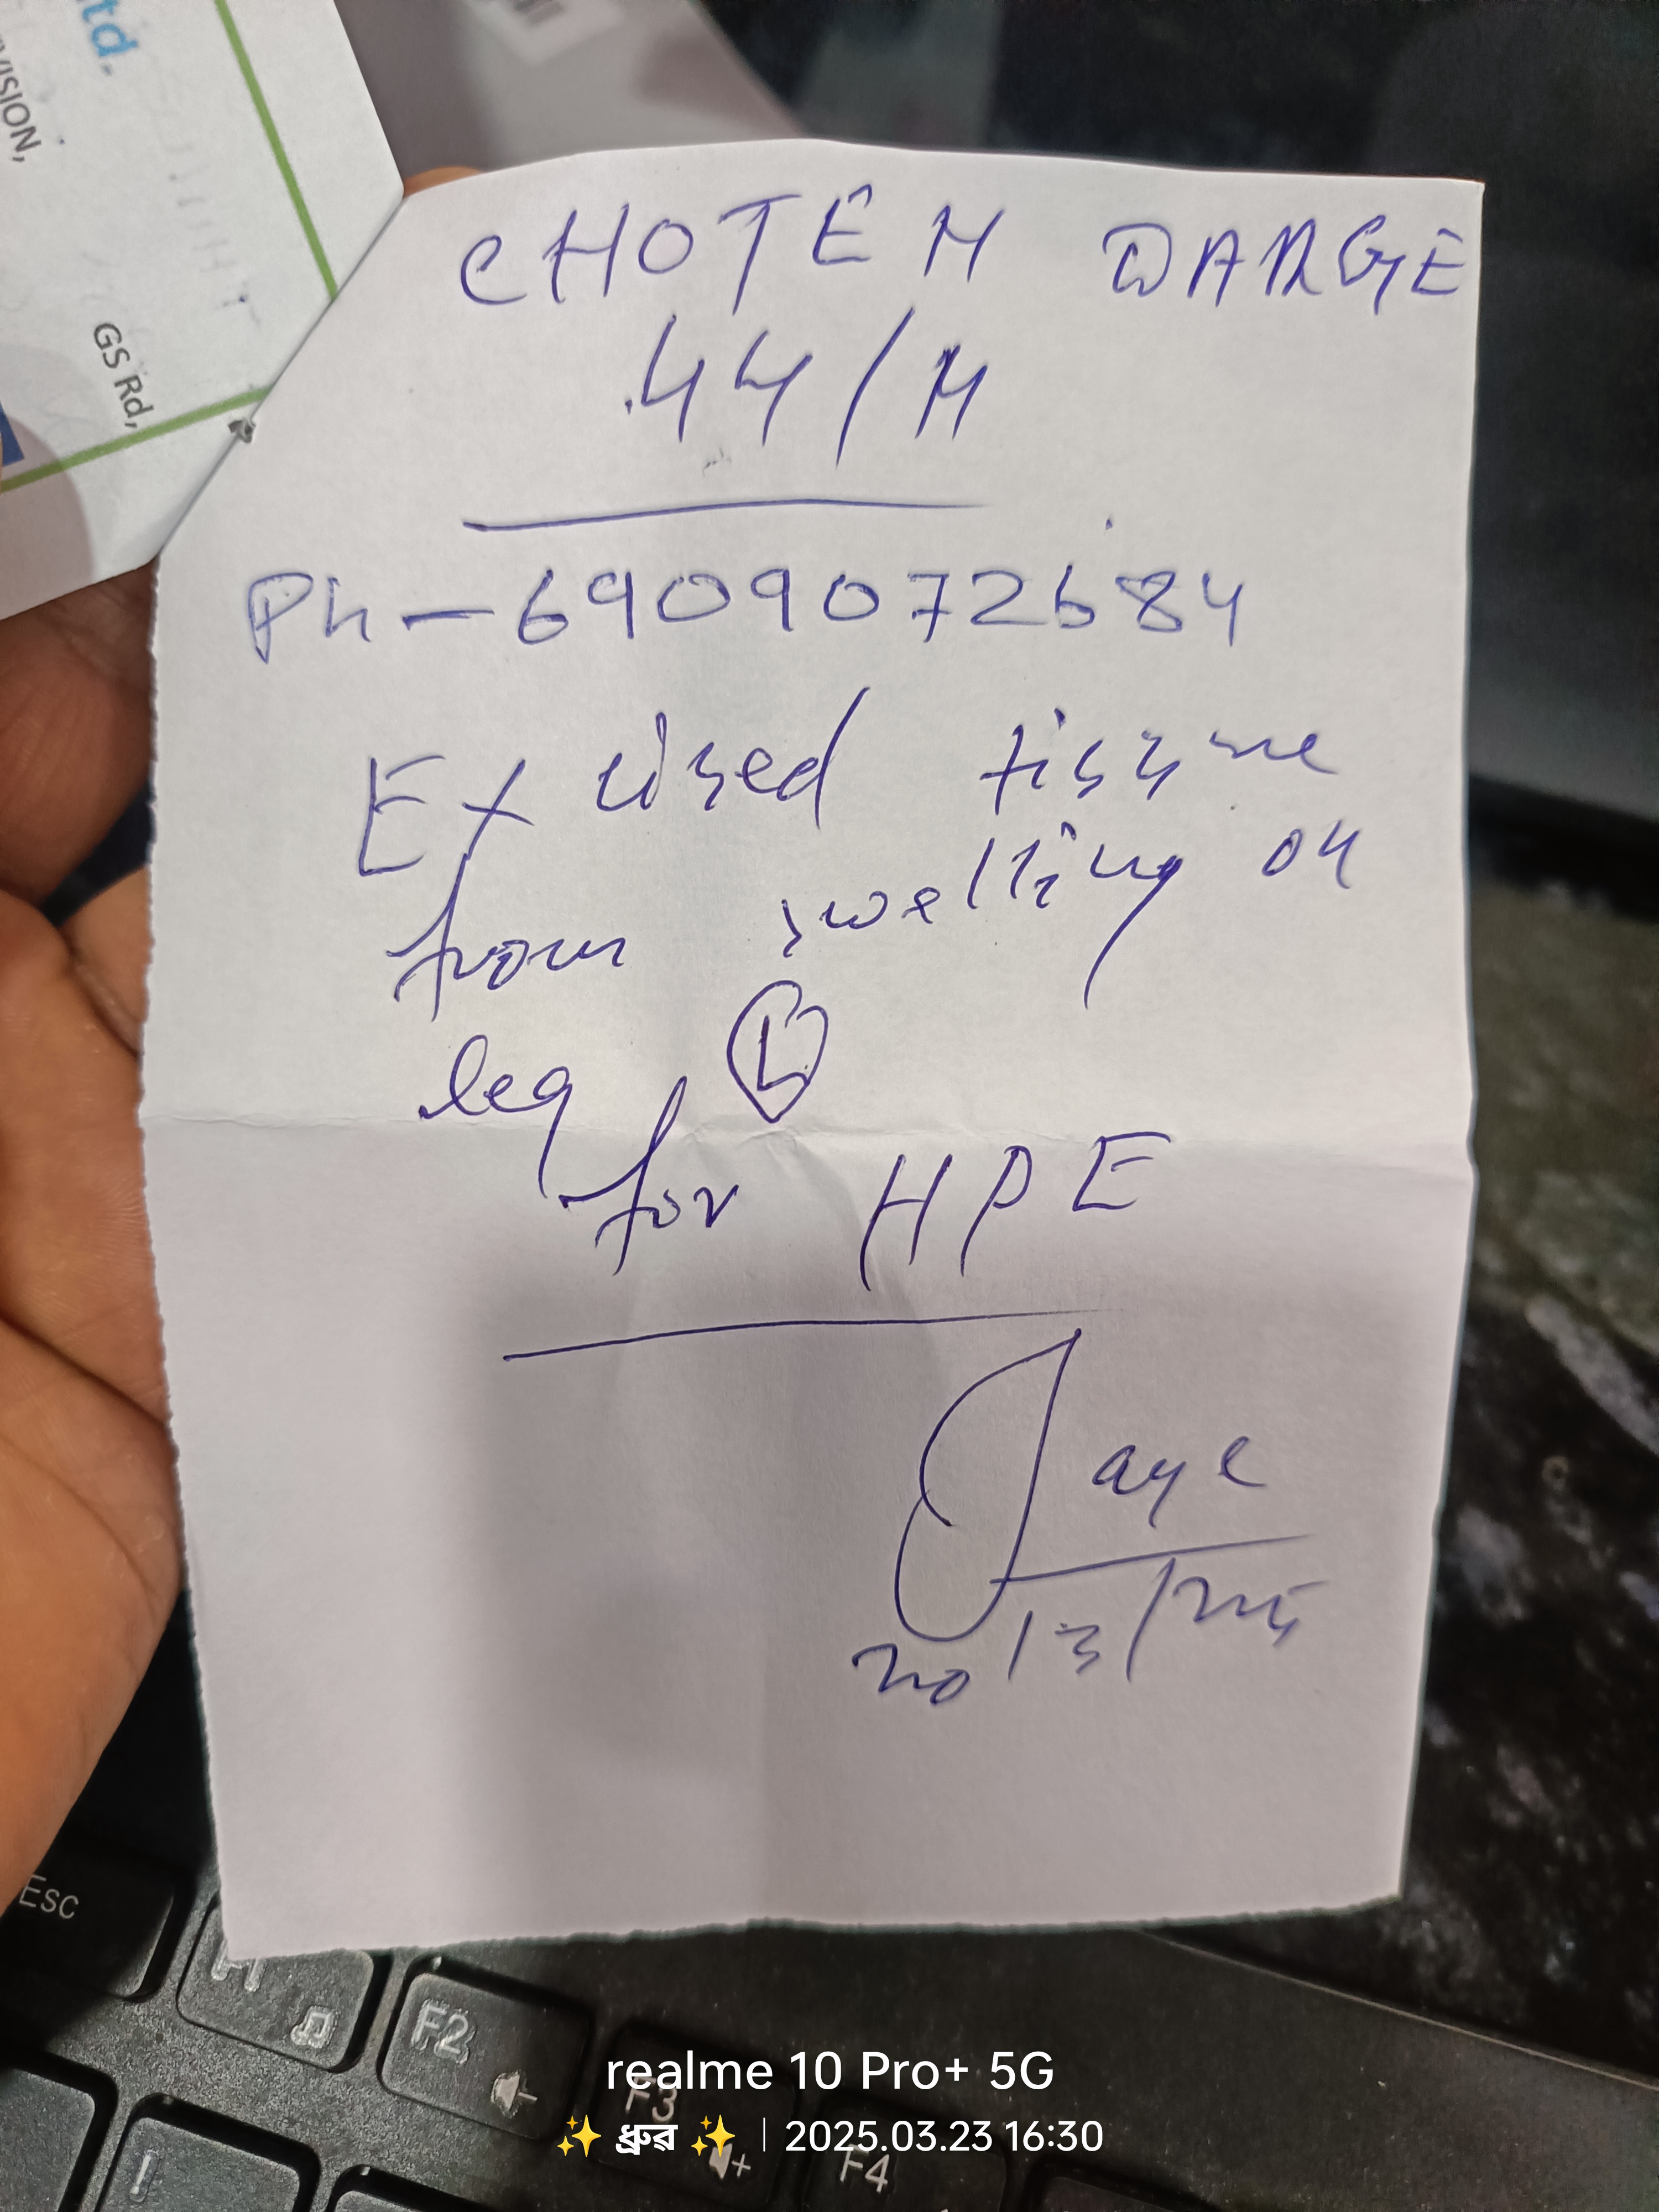 td.
VISION,
GS Rd,
CHOTEM DARGE
44/M
Ph-6909072684
Excised tissue
from swelling on
leg (L)
for HPE
Jaye
20/3/25
Esc
F1
F2
F3
F4
!
realme 10 Pro+ 5G
✨ ধ্ৰুৱ ✨ | 2025.03.23 16:30